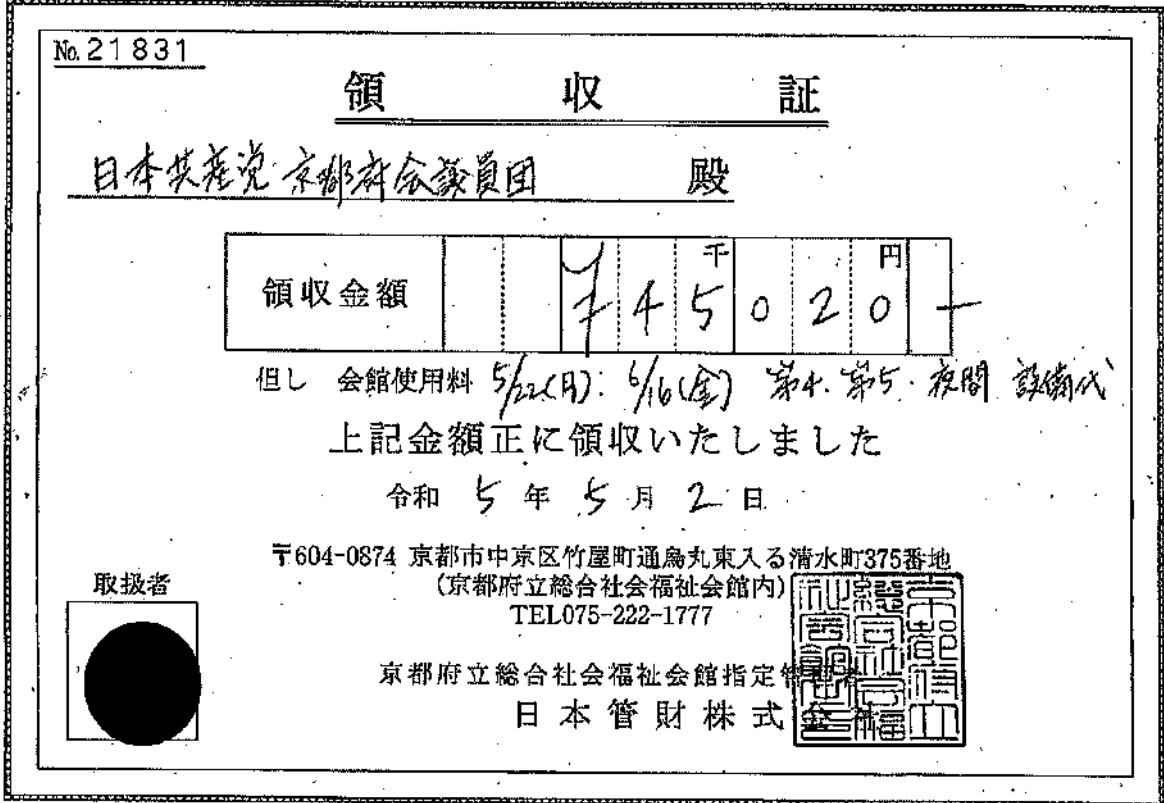 No. 21831
領収証
日本共産党京都府会議員団 殿
領収金額 ¥45020-
千 円
但し 会館使用料 5/22(月). 6/16(金) 第4.第5.夜間 設備代
上記金額正に領収いたしました
令和 5 年 5 月 2 日
〒604-0874 京都市中京区竹屋町通烏丸東入る清水町375番地
(京都府立総合社会福祉会館内)
TEL075-222-1777
取扱者
京都府立総合社会福祉会館指定管理者
日本管財株式会社